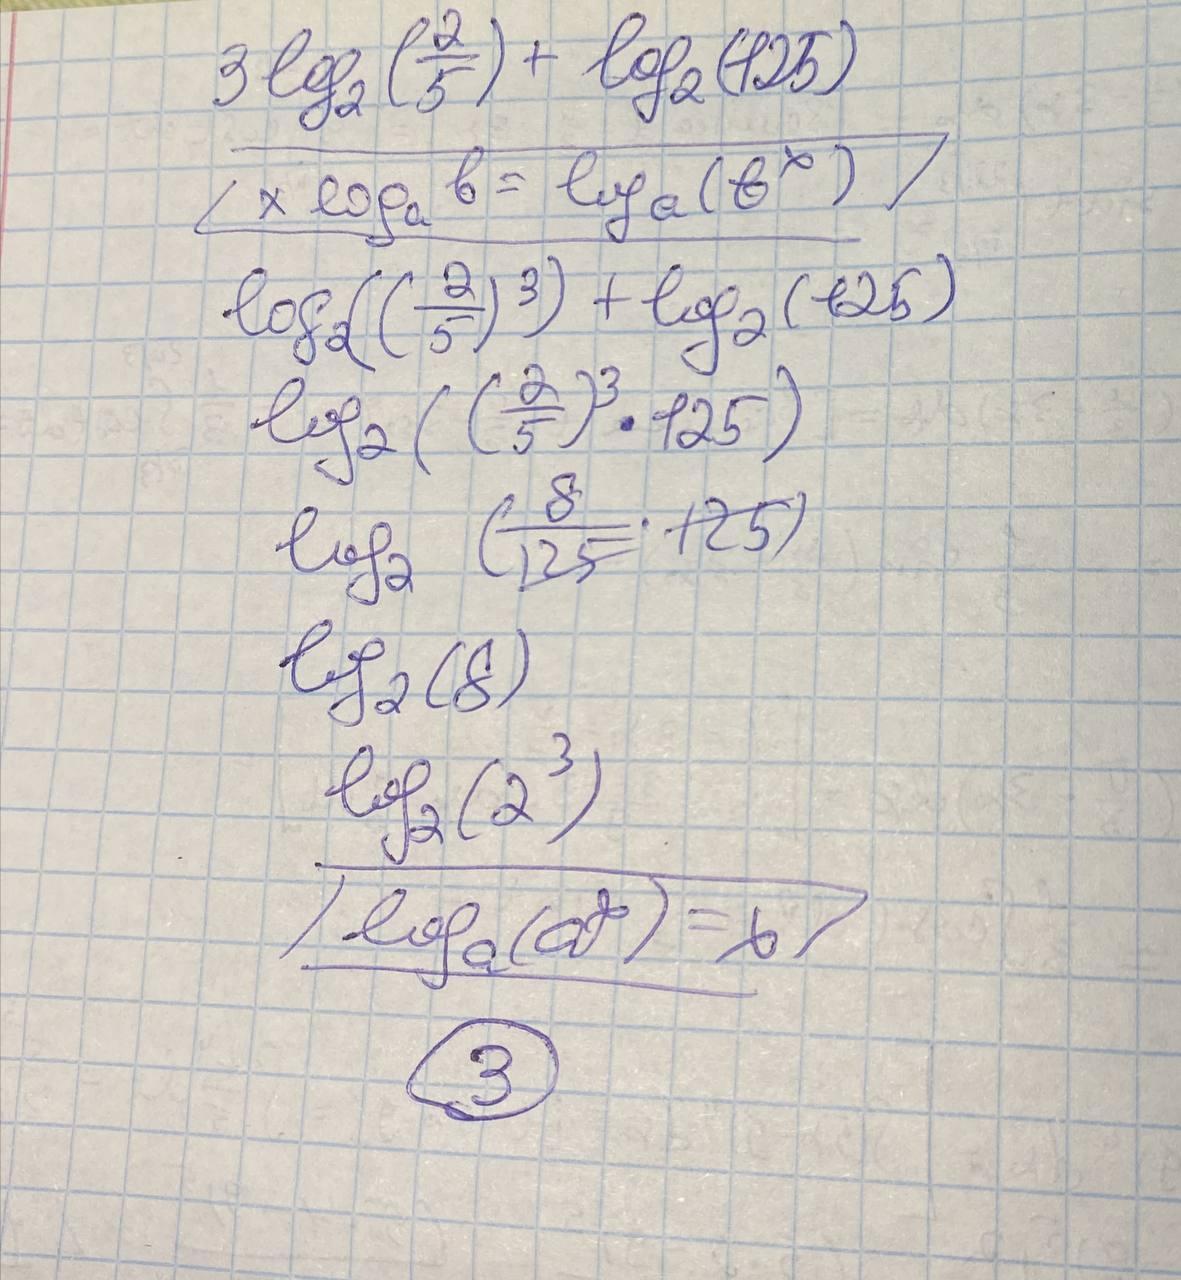 3 log₂(2/5) + log₂(125)
/ x logₐ b = logₐ(b^x) /
log₂((2/5)^3) + log₂(125)
log₂((2/5)^3 · 125)
log₂ (8/125 · 125)
log₂(8)
log₂(2^3)
/ logₐ(a^x) = x /
3